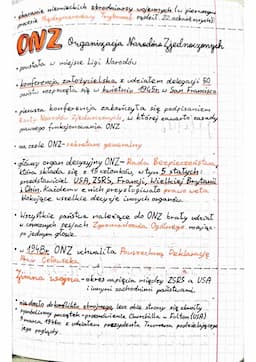 • ukaranie niemieckich zbrodniarzy wojennych (w pierwszym
procesie Międzynarodowy Trybunał
ONZ Organizacja Narodów Zjednoczonych
• powstała w miejsce Ligi Narodów
• konferencja założycielska z udziałem delegacji 50
państw rozpoczęła się w kwietniu 1945r. w San Francisco
• pierwsza konferencja zakończyła się podpisaniem
Karty Narodów Zjednoczonych, w której zawarto zasady
prawnego funkcjonowania ONZ
• na czele ONZ - sekretarz generalny
• główny organ decyzyjny ONZ - Rada Bezpieczeństwa,
która składa się z 15 członków, w tym 5 stałych:
przedstawiciel USA, ZSRS, Francji, Wielkiej Brytanii
i Chin. Każdemu z nich przysługiwało prawo weta
blokujące wszelkie decyzje innych organów.
• Wszystkie państwa należące do ONZ brały udział
w corocznych sesjach Zgromadzenia Ogólnego mając
po jednym głosie.
• w 1948r. ONZ uchwaliła Powszechną Deklarację
Praw Człowieka
Zimna wojna - okres napięcia między ZSRS a USA
i innymi zachodnimi państwami.
• nie doszło do konfliktu zbrojnego, lecz obie strony się
• symboliczny początek - przemówienie Churchilla w Fulton (USA)
marca 1946r. z udziałem prezydenta Trumana podzielającego
jego poglądy.